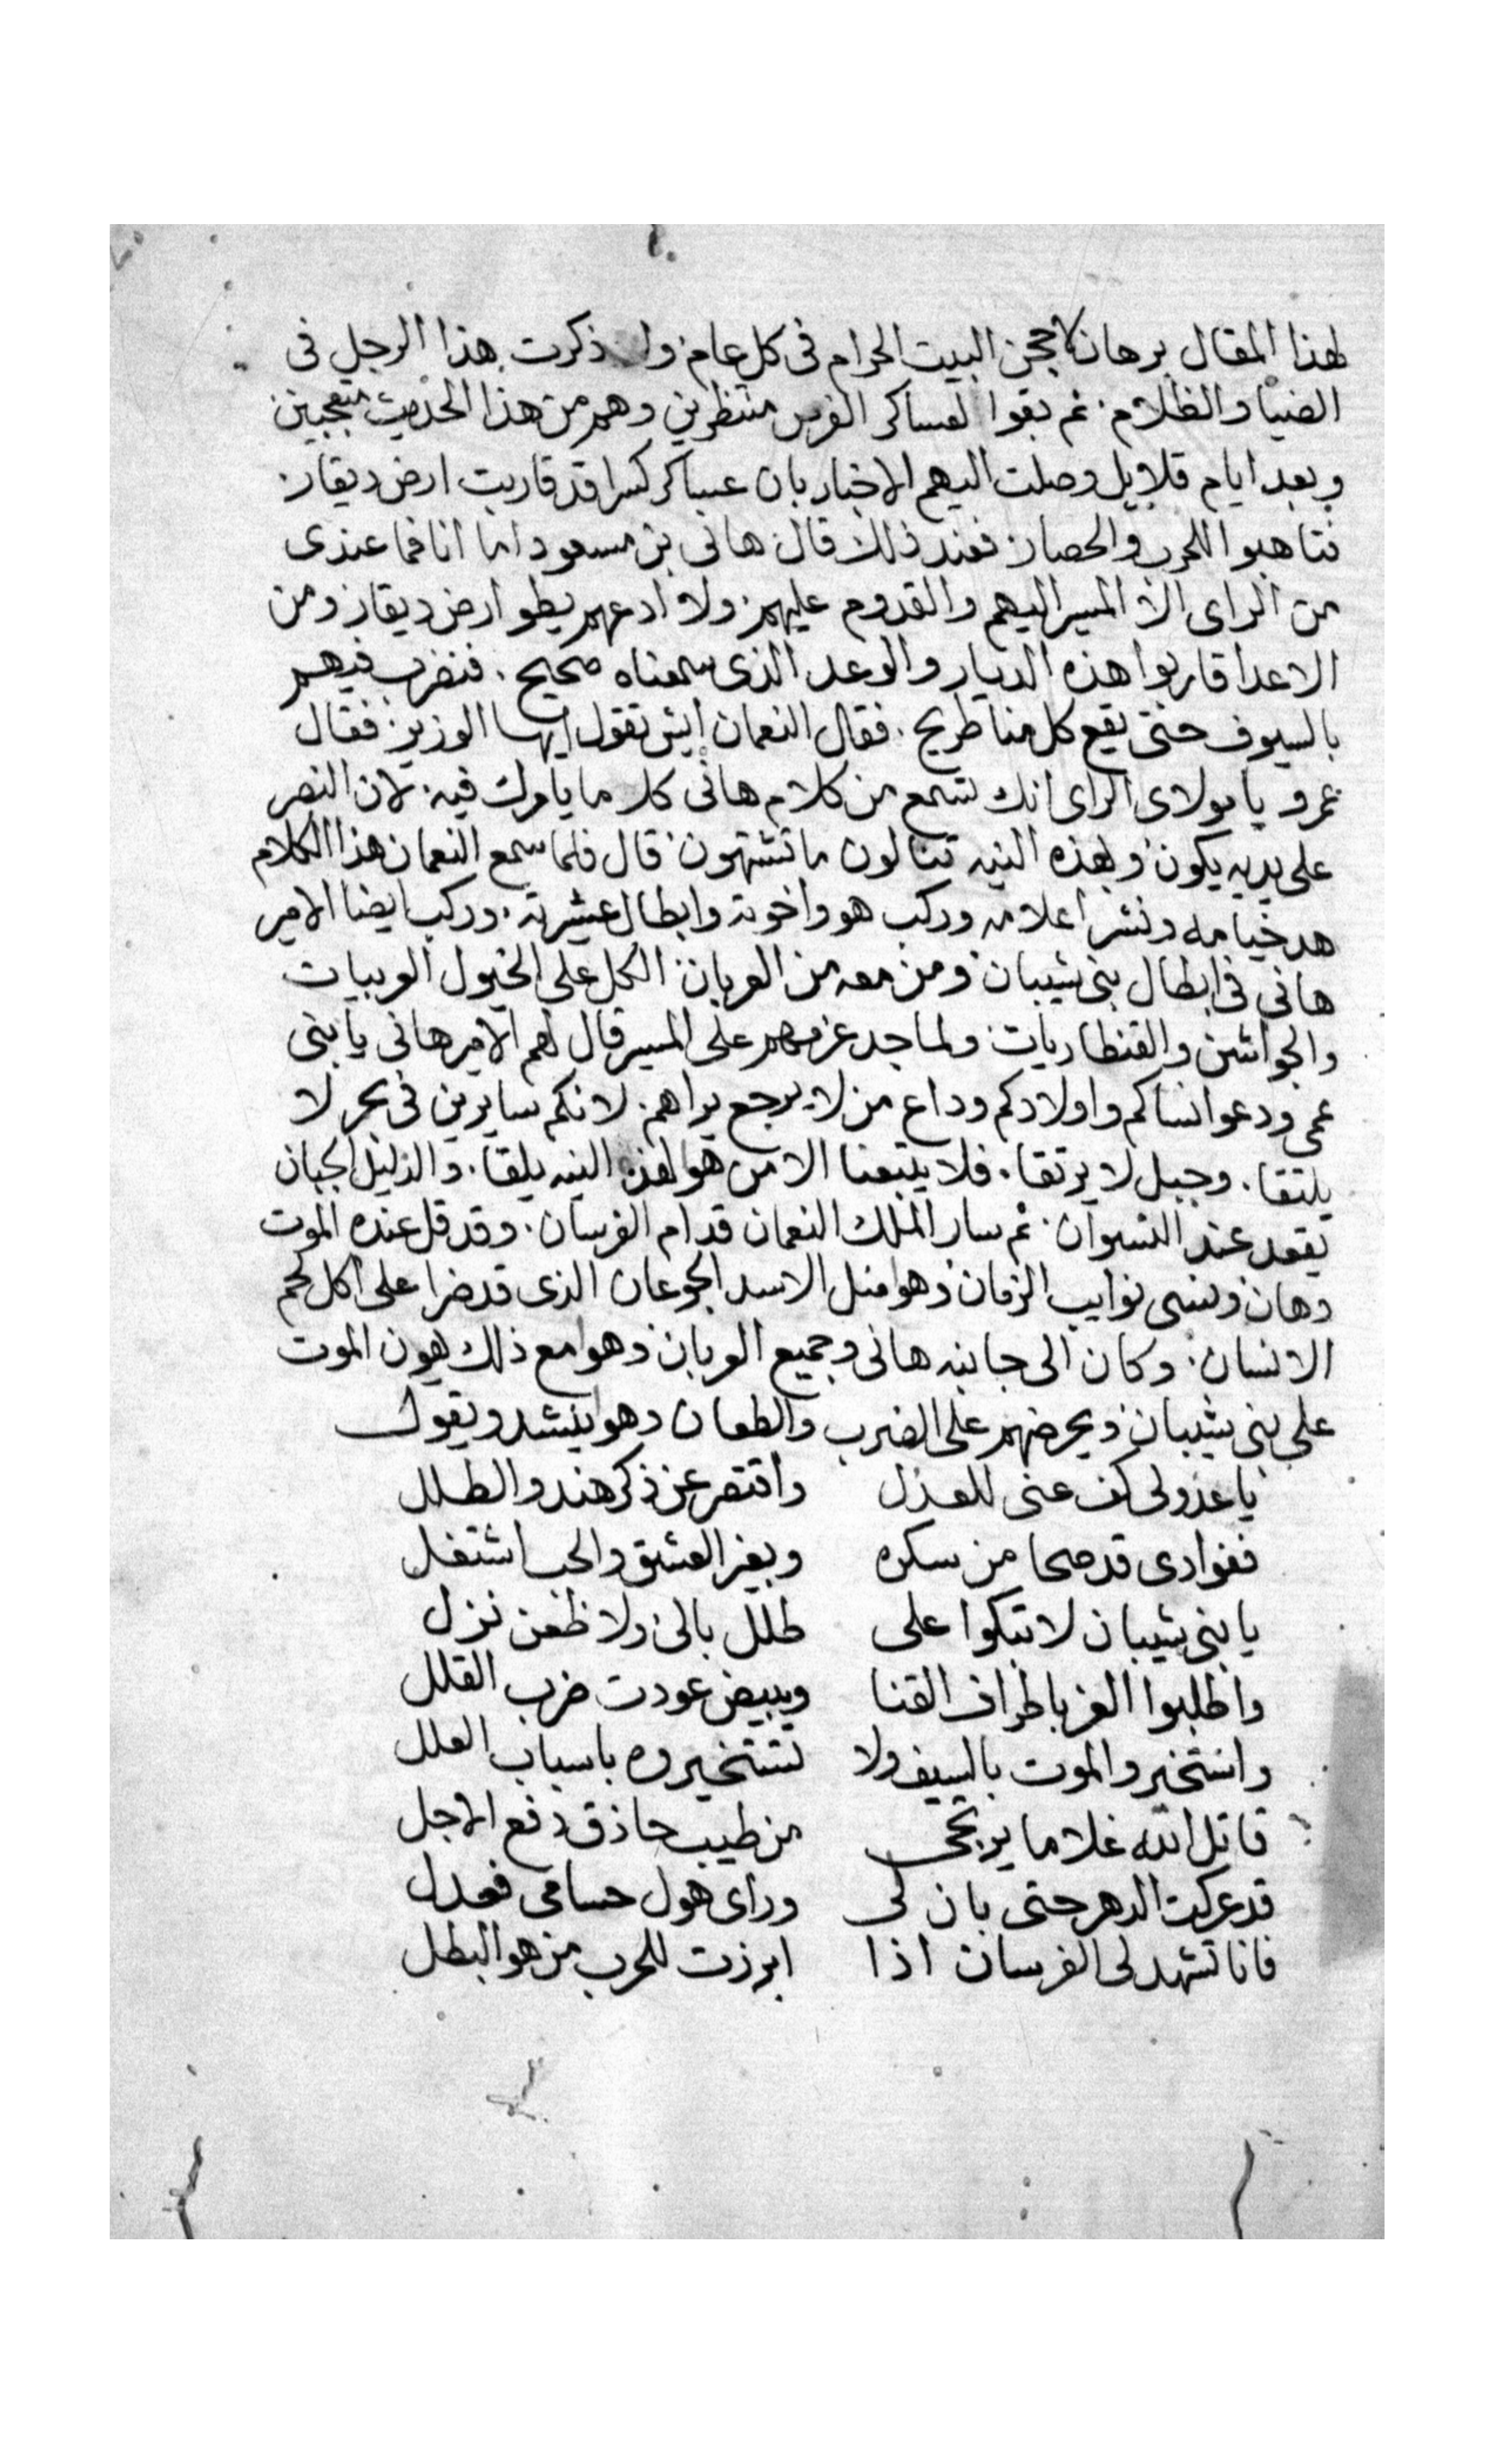 لهذا المقال برهان لاحجن البيت الحرام فى كل عام ولا ذكرت هذا الرجل فى
الضيا والظلام ثم بقوا لعساكر الفرس منتظرين وهم من هذا الحديث متعجبين
وبعد ايام قلايل وصلت اليهم الاخبار بان عساكر كسرا قد قاربت ارض ديقار
فتاهبوا للحرب والحصار فعند ذلك قال هانى بن مسعود اما انا فما عندى
من الراى الا المسير اليهم والقدوم عليهم ولا ادعهم يطو ارض ديقار ومن
الاعدا قاربوا هذه الديار والوعد الذى سمعناه صحيح فنضرب فيهم
بالسيوف حتى يقع كل منا طريح فقال النعمان ايش تقول ايها الوزير فقال
عمرو يا مولاى الراى انك تسمع من كلام هانى كل ما يامرك فيه لان النصر
على يديه يكون وبهذه النيه تنالون ما تشتهون قال فلما سمع النعمان هذا الكلام
هد خيامه ونشر اعلامه وركب هو واخوته وابطال عشيرته وركب ايضا الامير
هانى فى ابطال بنى شيبان ومن معه من العربان الكل على الخيول العربيات
والجواشن والقنطاريات ولما جد عزمهم على المسير قال لهم الامير هانى يا بنى
عمى ودعوا نساكم واولادكم وداع من لا يرجع يراهم لانكم سايرين فى بحر لا
يلتقا وجبل لا يرتقا فلا يتبعنا الا من هو لهذه النيه يلقا والذليل الجبان
يقعد عند النسوان ثم سار الملك النعمان قدام الفرسان وقد قل عنده الموت
وهان ونسى نوايب الزمان وهوا مثل الاسد الجوعان الذى قد ضرا على اكل لحم
الانسان وكان الى جانبه هانى وجميع العربان وهوا مع ذلك يهون الموت
على بنى شيبان ويحرضهم على الضرب والطعان وهوا ينشد ويقول
يا عذولى كف عنى للعذل واقتصر عن ذكر هند والطلل
ففوادى قد صحا من سكره وبغير العشق والحب اشتغل
يا بنى شيبان لا تبكوا على طلل بالى ولا ظعن نزل
واطلبوا العز باطراف القنا وببيض عودت ضرب القلل
واستخيروا الموت بالسيف ولا تستخيروه باسباب العلل
قاتل الله غلاما يرتجى من طبيب حاذق دفع الاجل
قد عركت الدهر حتى بان لى وراى هول حسامى فعدل
فانا تشهد لى الفرسان اذا ابرزت للحرب من هو البطل